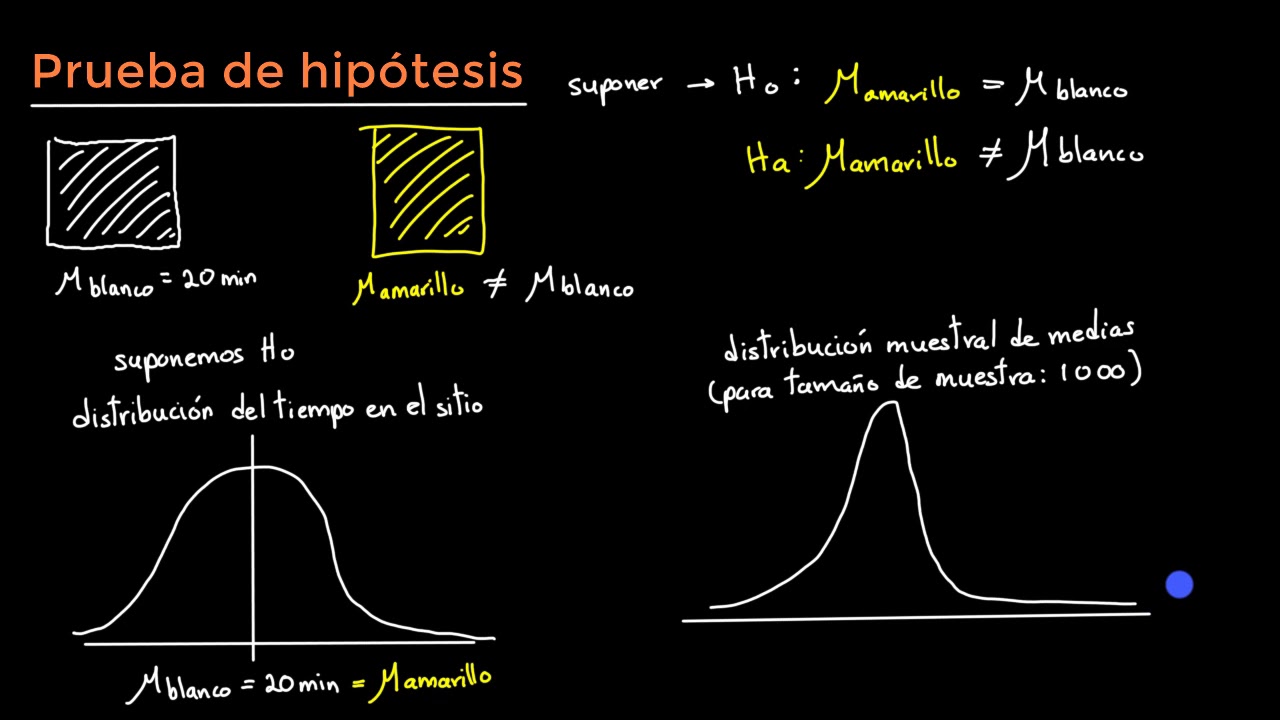 Prueba de hipótesis
suponer → Ho: μamarillo = μblanco
Ha: μamarillo ≠ μblanco
μblanco = 20 min
μamarillo ≠ μblanco
suponemos Ho
distribución del tiempo en el sitio
μblanco = 20 min = μamarillo
distribución muestral de medias
(para tamaño de muestra: 1000)